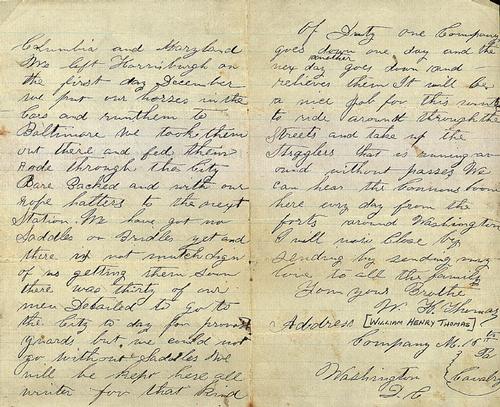 Columbia and Maryland
We left Harrisburgh on
the first day December
we put our horses in the
Cars and run them to
Baltimore We took them
out there and fed them
Rode through the City
Bare Backed and with our
rope halters to the next
Station We have got no
Saddles or Bridles yet and
there is not much sign
of us getting them Soon
there was thirty of our
men Detailed to go to
the City to day for provost
guards but we could not
go without Saddles We
will be kept here all
winter for that kind
Of Duty one Company
goes down one day and the
another
next day goes down and
relieves them It will be
a nice job for this winter
to ride around through the
Streets and take up the
Stragglers that is running ar
ound without passes We
can hear the cannons boom
here evry day from the
forts around Washington
I will now Close by
Sending by sending my
love to all the family
From your Brother
W. H. Thomas
Address [WILLIAM HENRY THOMAS]
Company M. 15th
Cavalry
Washington
D. C